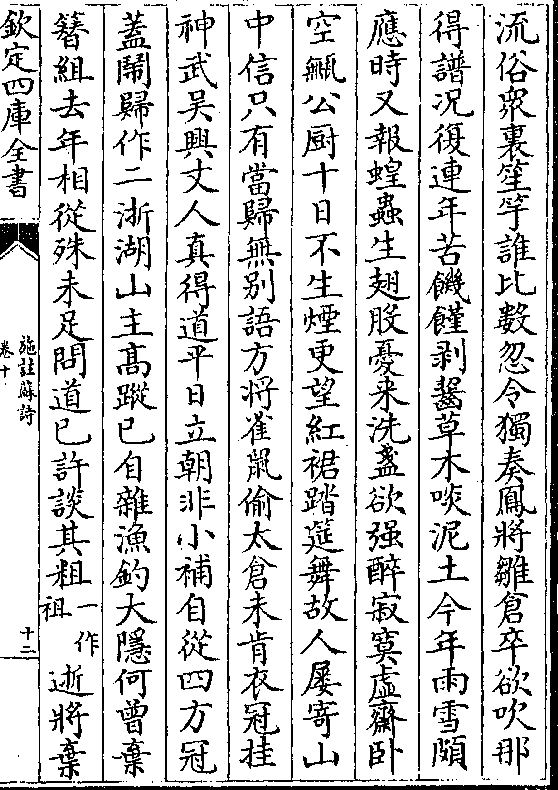 流俗衆裏笙竽誰比數忽令獨奏鳳將雛倉卒欲吹那
得譜況復連年苦饑饉剥齧草木啖泥土今年雨雪頗
應時又報蝗蟲生翅股憂来洗盞欲强醉寂寞虚齋卧
空甒公厨十日不生煙更望紅裙踏筵舞故人屢寄山
中信只有當歸無别語方将雀鼠偷太倉未肯衣冠挂
神武吴興丈人真得道平日立朝非小補自從四方冠
蓋鬧歸作二浙湖山主髙蹤已自雜漁釣大隱何曾棄
簪組去年相從殊未足問道已許談其粗一作祖逝將棄
欽定四庫全書
施註蘇詩
卷十
十二